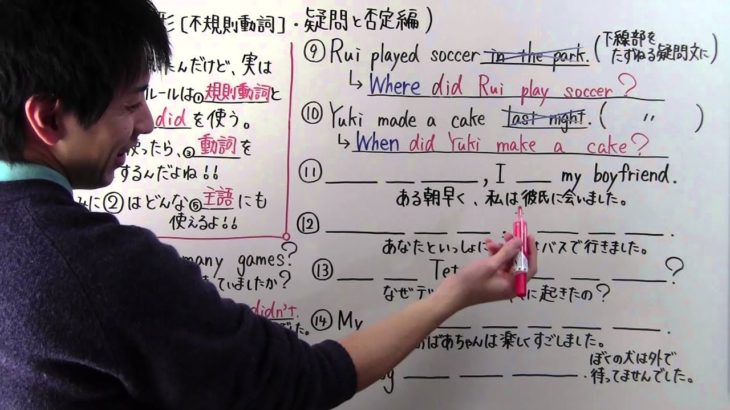 形 [不規則動詞]・疑問と否定編)
たんだけど、実は
ルールは①規則動詞と
didを使う。
使ったら、③動詞を
するんだよね!!
に②はどんな⑤主語にも
使えるよ!!
many games?
ていましたか?
didn't.
⑨ Rui played soccer in the park. (下線部をたずねる疑問文に)
↳ Where did Rui play soccer?
⑩ Yuki made a cake last night. ( 〃 )
↳ When did Yuki make a cake?
⑪ ___ ___ ___, I ___ my boyfriend.
ある朝早く、私は彼氏に会いました。
⑫ ___ ___ ___ ___ ___ ___.
あなたといっしょに バスで行きました。
⑬ ___ ___ Tet ___ ___ ___?
なぜデ に起きたの?
⑭ My ___ ___ ___ ___ ___.
おばあちゃんは楽しくすごしました。
___ ___ ___.
ぼくの犬は外で
待ってませんでした。